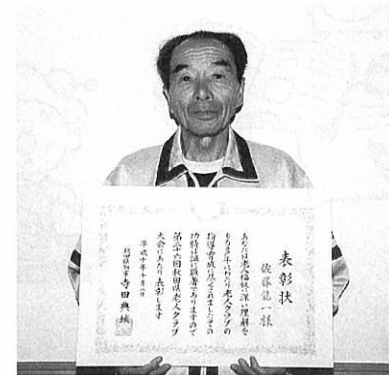 表彰状
佐藤 一様
あなたは老人福祉に深い理解を
もち多年にわたり老人クラブの
指導育成に尽くされましたその
功績は誠に顕著でありますので
第三六回秋田県老人クラブ
大会にあたり表彰します
平成十年十月八日
秋田県知事 寺田典城